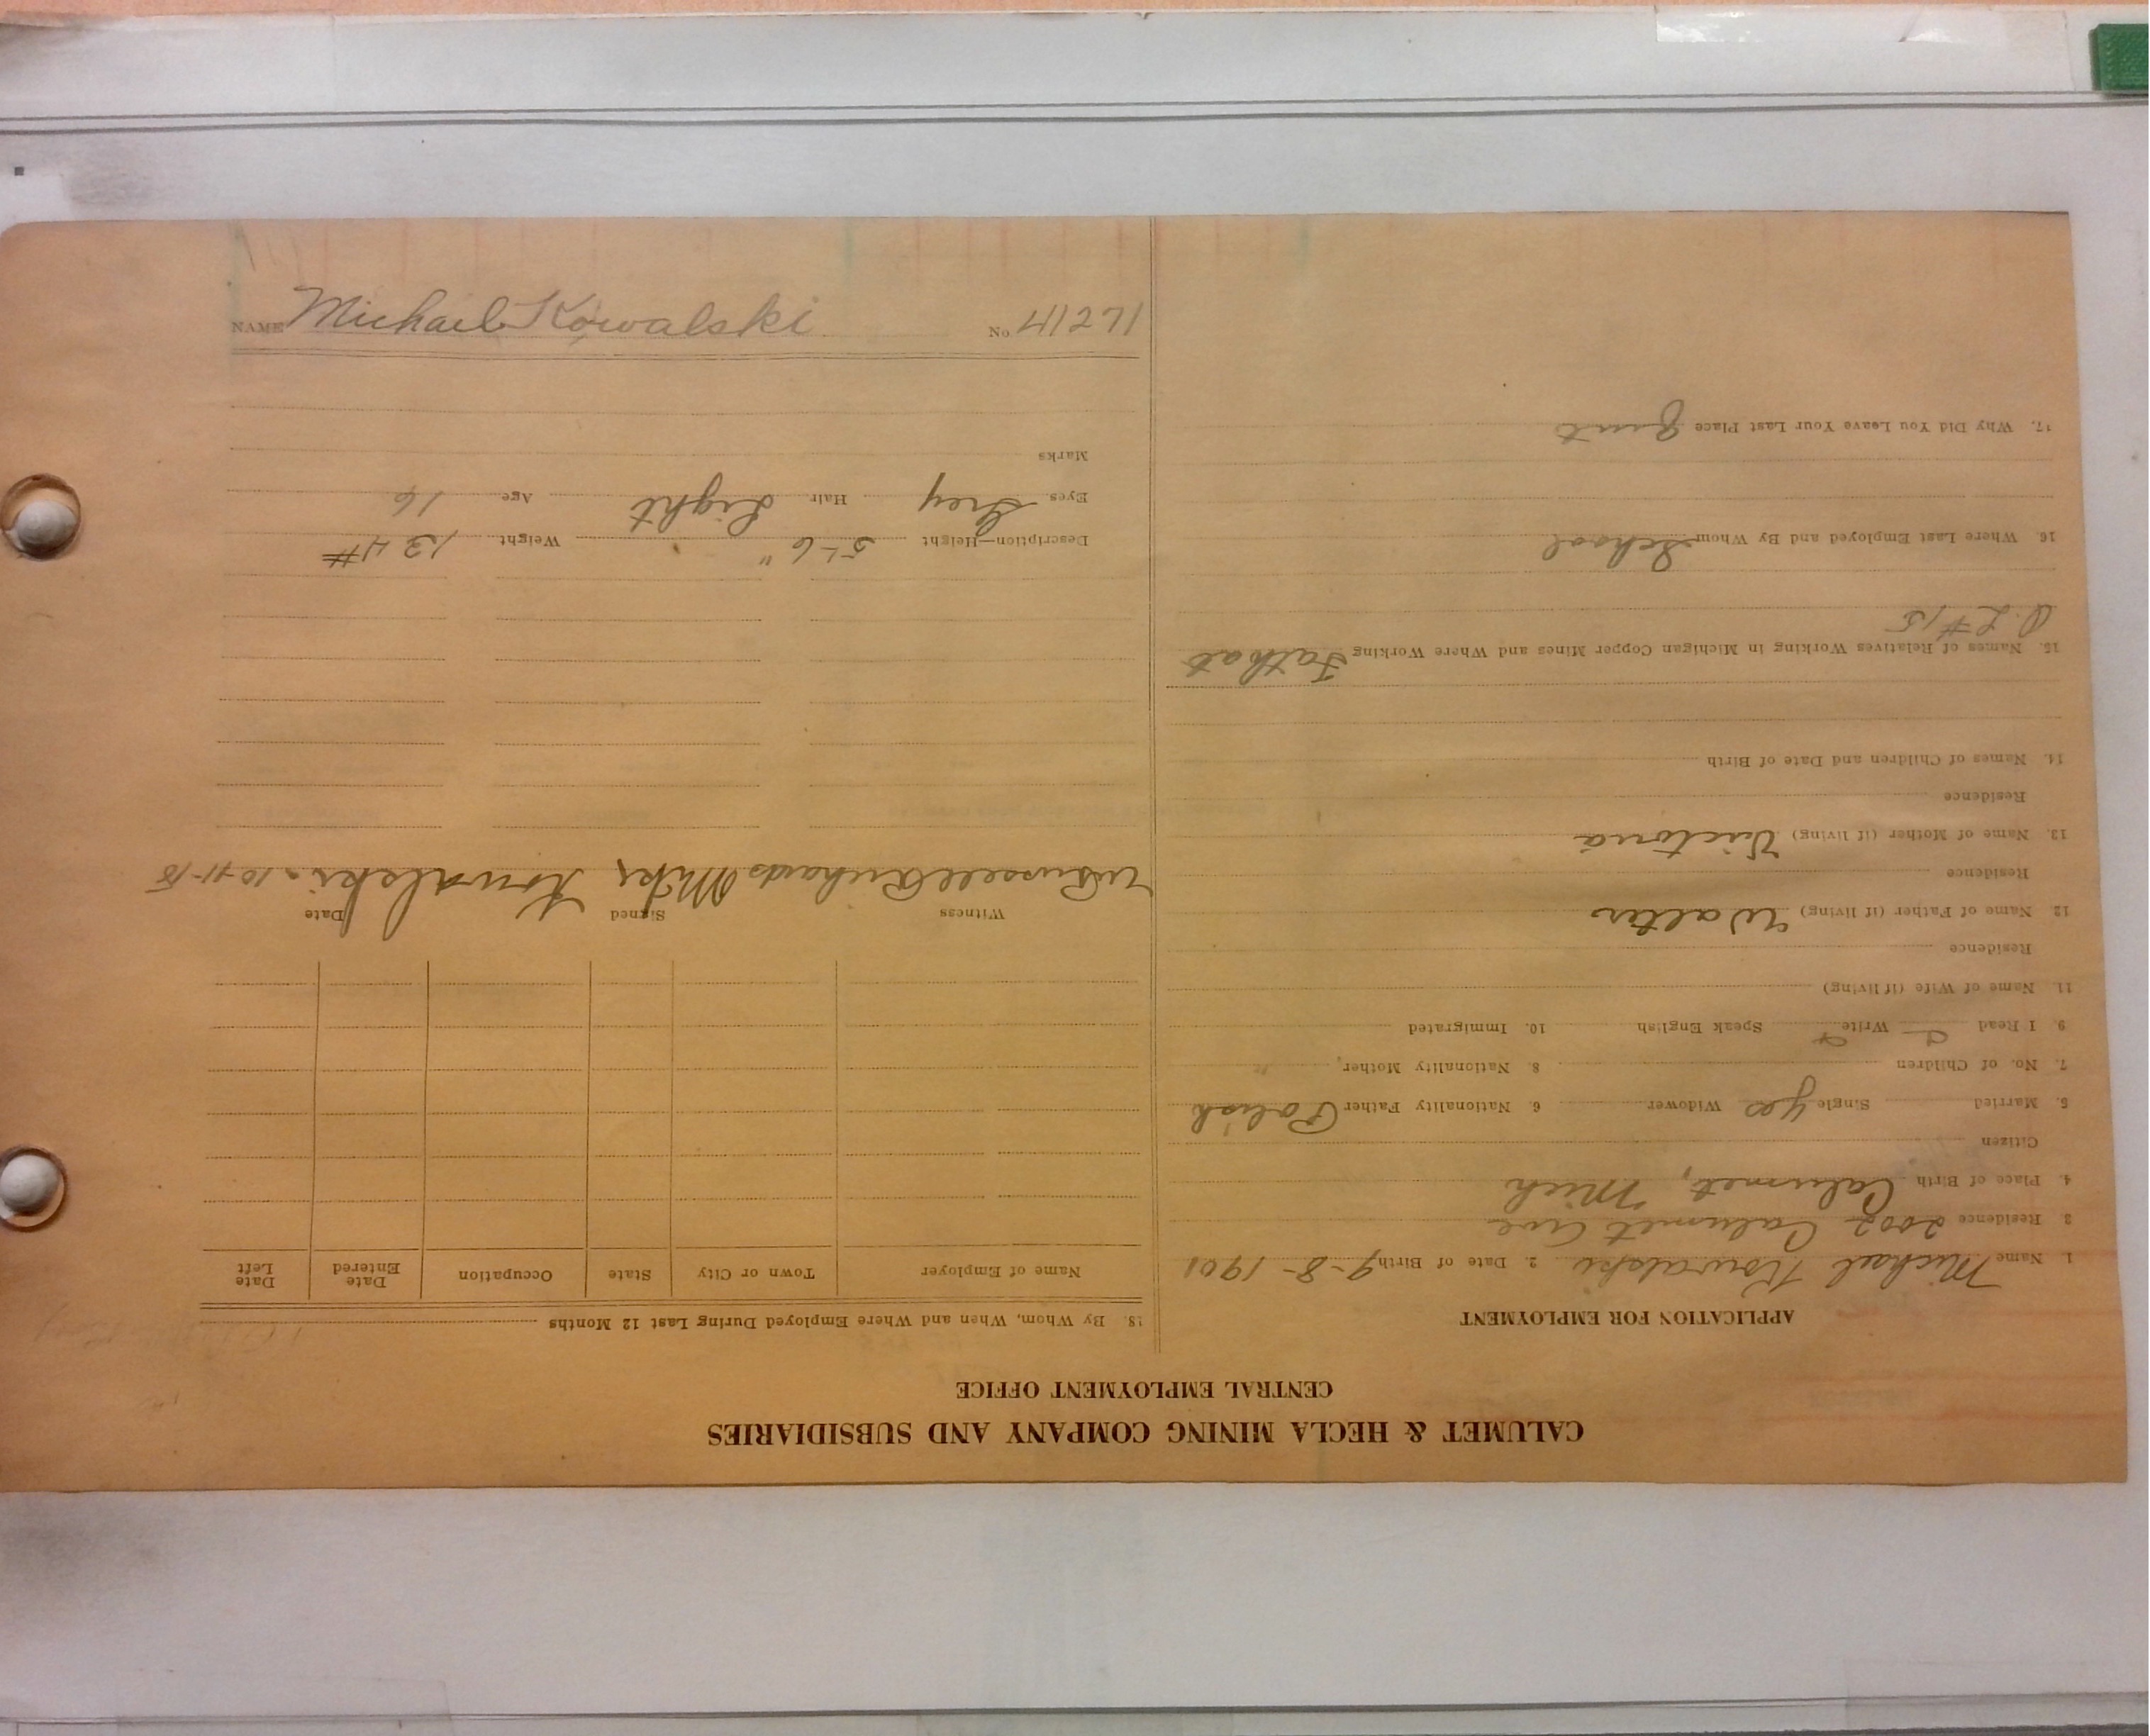 CALUMET & HECLA MINING COMPANY AND SUBSIDIARIES
CENTRAL EMPLOYMENT OFFICE
APPLICATION FOR EMPLOYMENT
1. Name Michael Kowalski 2. Date of Birth 9-8-1901
3 Residence 2007 Calumet Ave
4. Place of Birth Calumet, Mich
Citizen
5. Married Single Yes Widower 6. Nationality Father Polish
7. No. of Children 8. Nationality Mother, "
9. I Read Write Speak English 10. Immigrated
11. Name of Wife (if living)
Residence
12. Name of Father (if living) Walter
Residence
13. Name of Mother (if living) Victoria
Residence
14. Names of Children and Date of Birth
15. Names of Relatives Working in Michigan Copper Mines and Where Working Father
#15
16. Where Last Employed and By Whom School
17. Why Did You Leave Your Last Place Quit
18. By Whom, When and Where Employed During Last 12 Months
Name of Employer Town or City State Occupation Date Entered Date Left
Witness Signed Date
W Russell Richards Mike Kowalski 10-11-18
Description—Height 5'-6" Weight 134#
Eyes Grey Hair Light Age 16
Marks
NAME Michael Kowalski No. 41271